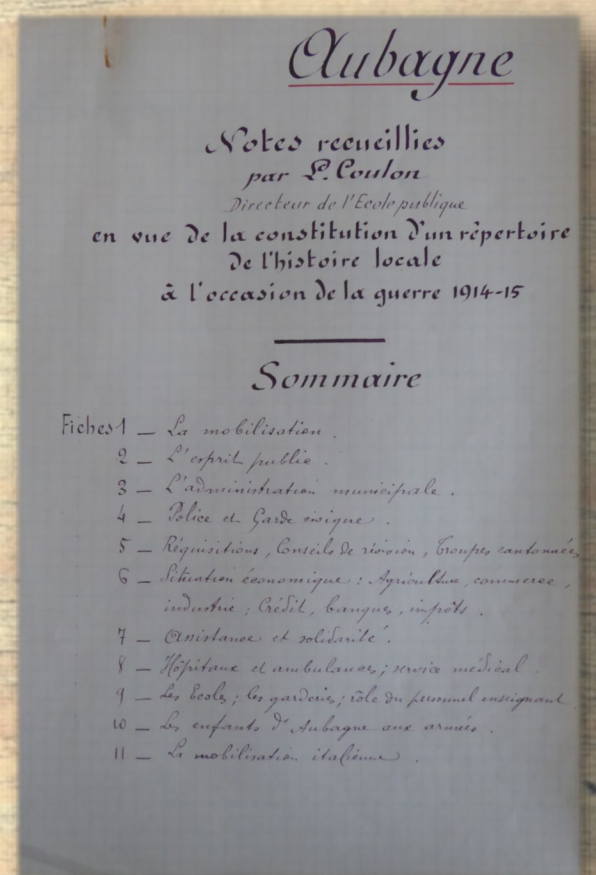 Aubagne
Notes recueillies
par L. Coulon
Directeur de l'Ecole publique
en vue de la constitution d'un répertoire
de l'histoire locale
à l'occasion de la guerre 1914-15
Sommaire
Fiches 1 — La mobilisation.
2 — L'esprit public.
3 — L'administration municipale.
4 — Police et Garde civique.
5 — Réquisitions, Conseils de révision, Troupes cantonnées
6 — Situation économique : Agriculture, commerce,
industrie ; Crédit, banques, impôts.
7 — Assistance et solidarité.
8 — Hôpitaux et ambulances ; service médical
9 — Les Ecoles ; les garderies ; rôle du personnel enseignant
10 — Les enfants d'Aubagne aux armées.
11 — La mobilisation italienne.